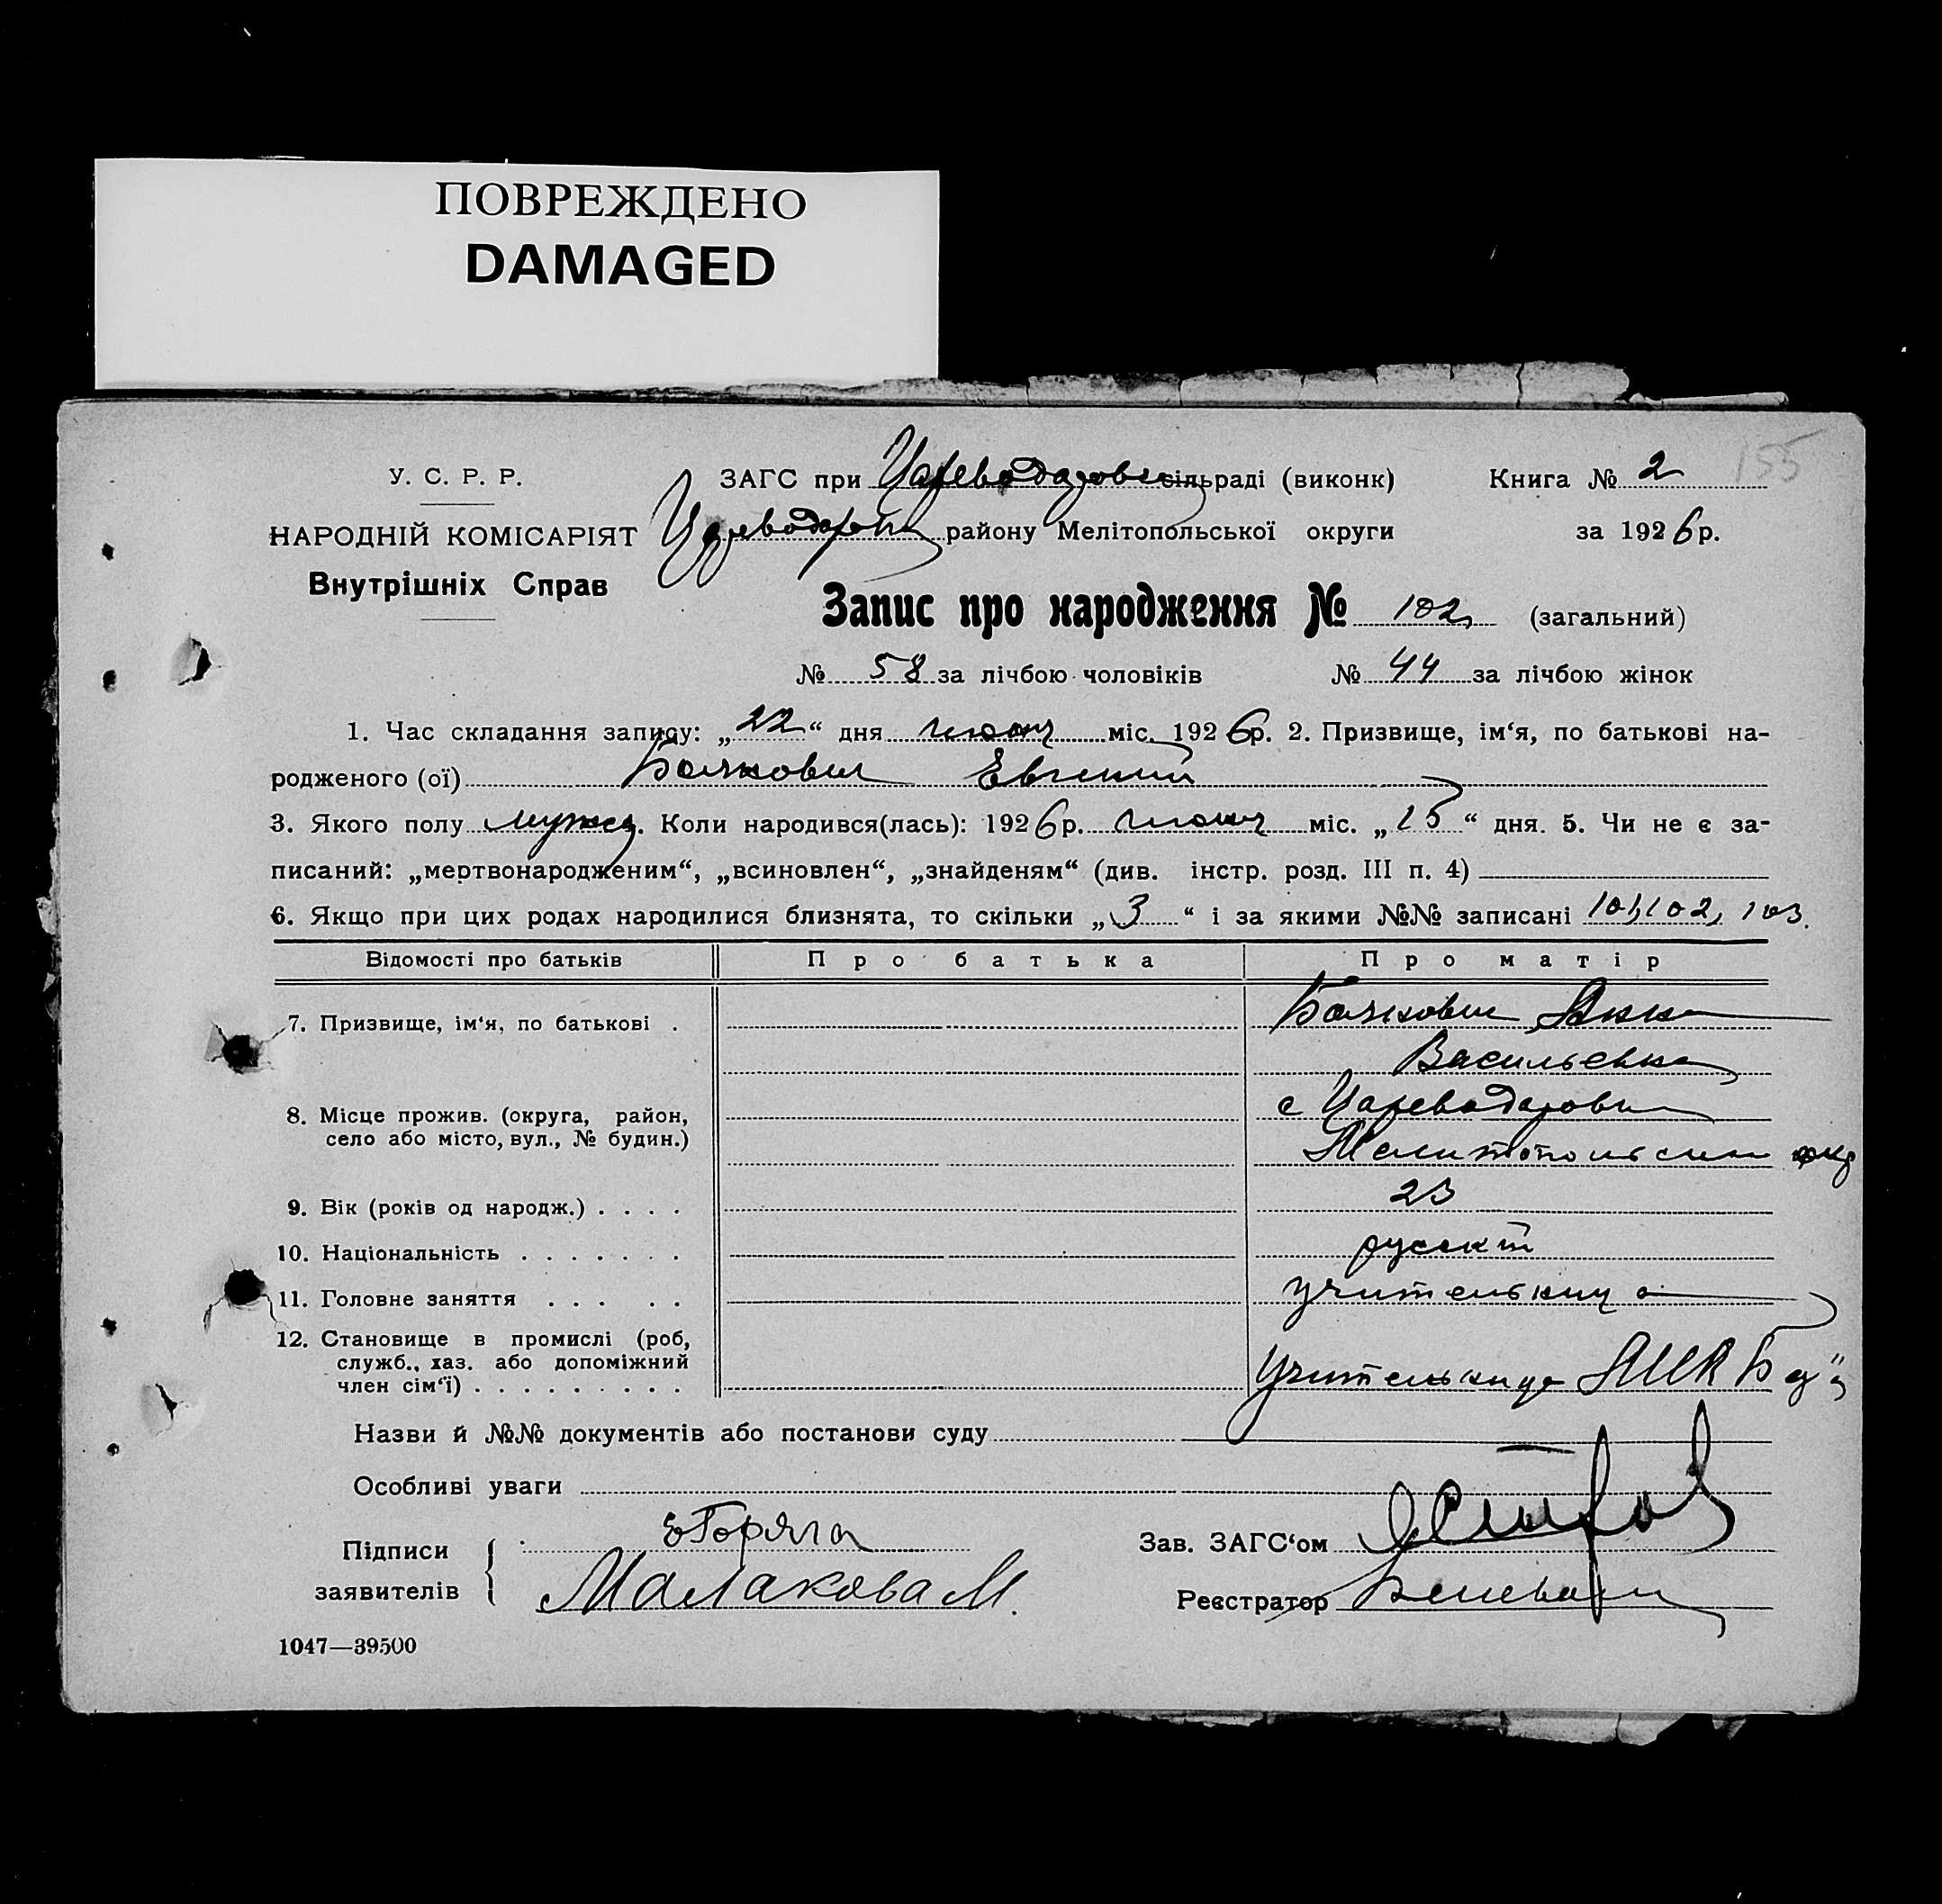 ПОВРЕЖДЕНО
DAMAGED
155
У. С. Р. Р.
ЗАГС при Цареводаровск сільраді (виконк)
Книга № 2
НАРОДНІЙ КОМІСАРІЯТ
району Мелітопольської округи
за 1926 р.
Внутрішніх Справ
Запис про народження № 102 (загальний)
№ 58 за лічбою чоловіків № 44 за лічбою жінок
1. Час складання запису: „22“ дня міс. 1926 р. 2. Призвище, ім‘я, по батькові на-
родженого (ої) Евгений
3. Якого полу мужск. Коли народився(лась): 1926 р. міс. „15“ дня. 5. Чи не є за-
писаний: „мертвонародженим“, „всиновлен“, „знайденям“ (див. інстр. розд. III п. 4)
6. Якщо при цих родах народилися близнята, то скільки „3“ і за якими №№ записані 101, 102, 103.
Відомості про батьків
Про батька
Про матір
7. Призвище, ім‘я, по батькові .
Анна
Васильевна
8. Місце прожив. (округа, район,
село або місто, вул., № будин.)
с Цареводаровка
Мелитопольский окр
9. Вік (років од народж.) . . . .
23
10. Національність . . . . . . .
русский
11. Головне заняття . . . . .
учительница
12. Становище в промислі (роб,
служб., хаз. або допоміжний
член сім‘ї) . . . . . . . . .
учительница
Назви й №№ документів або постанови суду
Особливі уваги
Підписи
заявителів
Горяга
Малахова М.
Зав. ЗАГС‘ом
Реєстратор
1047—39500